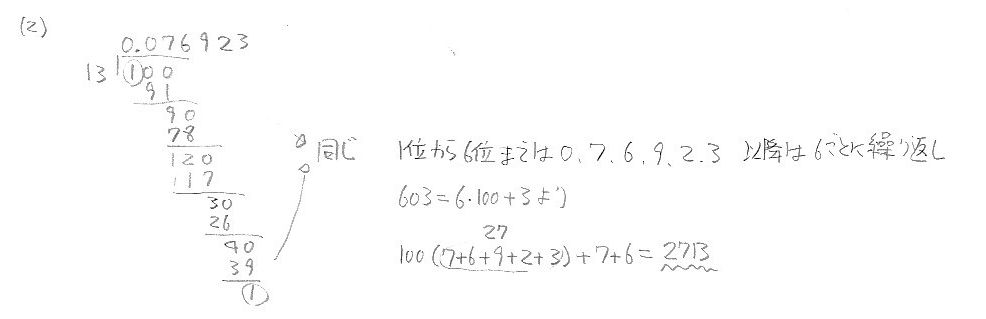 (2)
0.076923
13 100
91
90
78
120
117
30
26
40
39
1
同じ
1位から6位までは0、7、6、9、2、3 以降は6ごとに繰り返し
603=6・100+3より
27
100(7+6+9+2+3)+7+6=2713